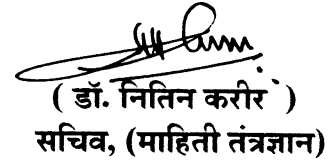 ( डॉ. नितिन करीर )
सचिव, (माहिती तंत्रज्ञान)